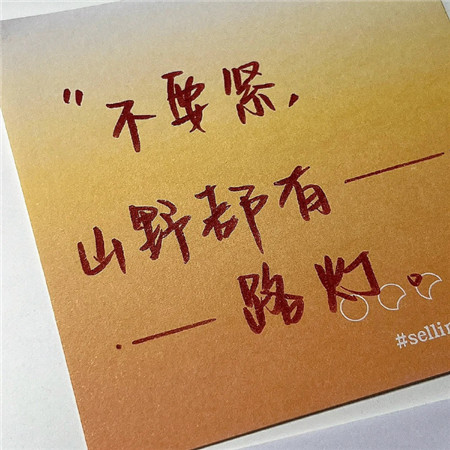 “不要紧，
山野都有——
——路灯。
#sellin